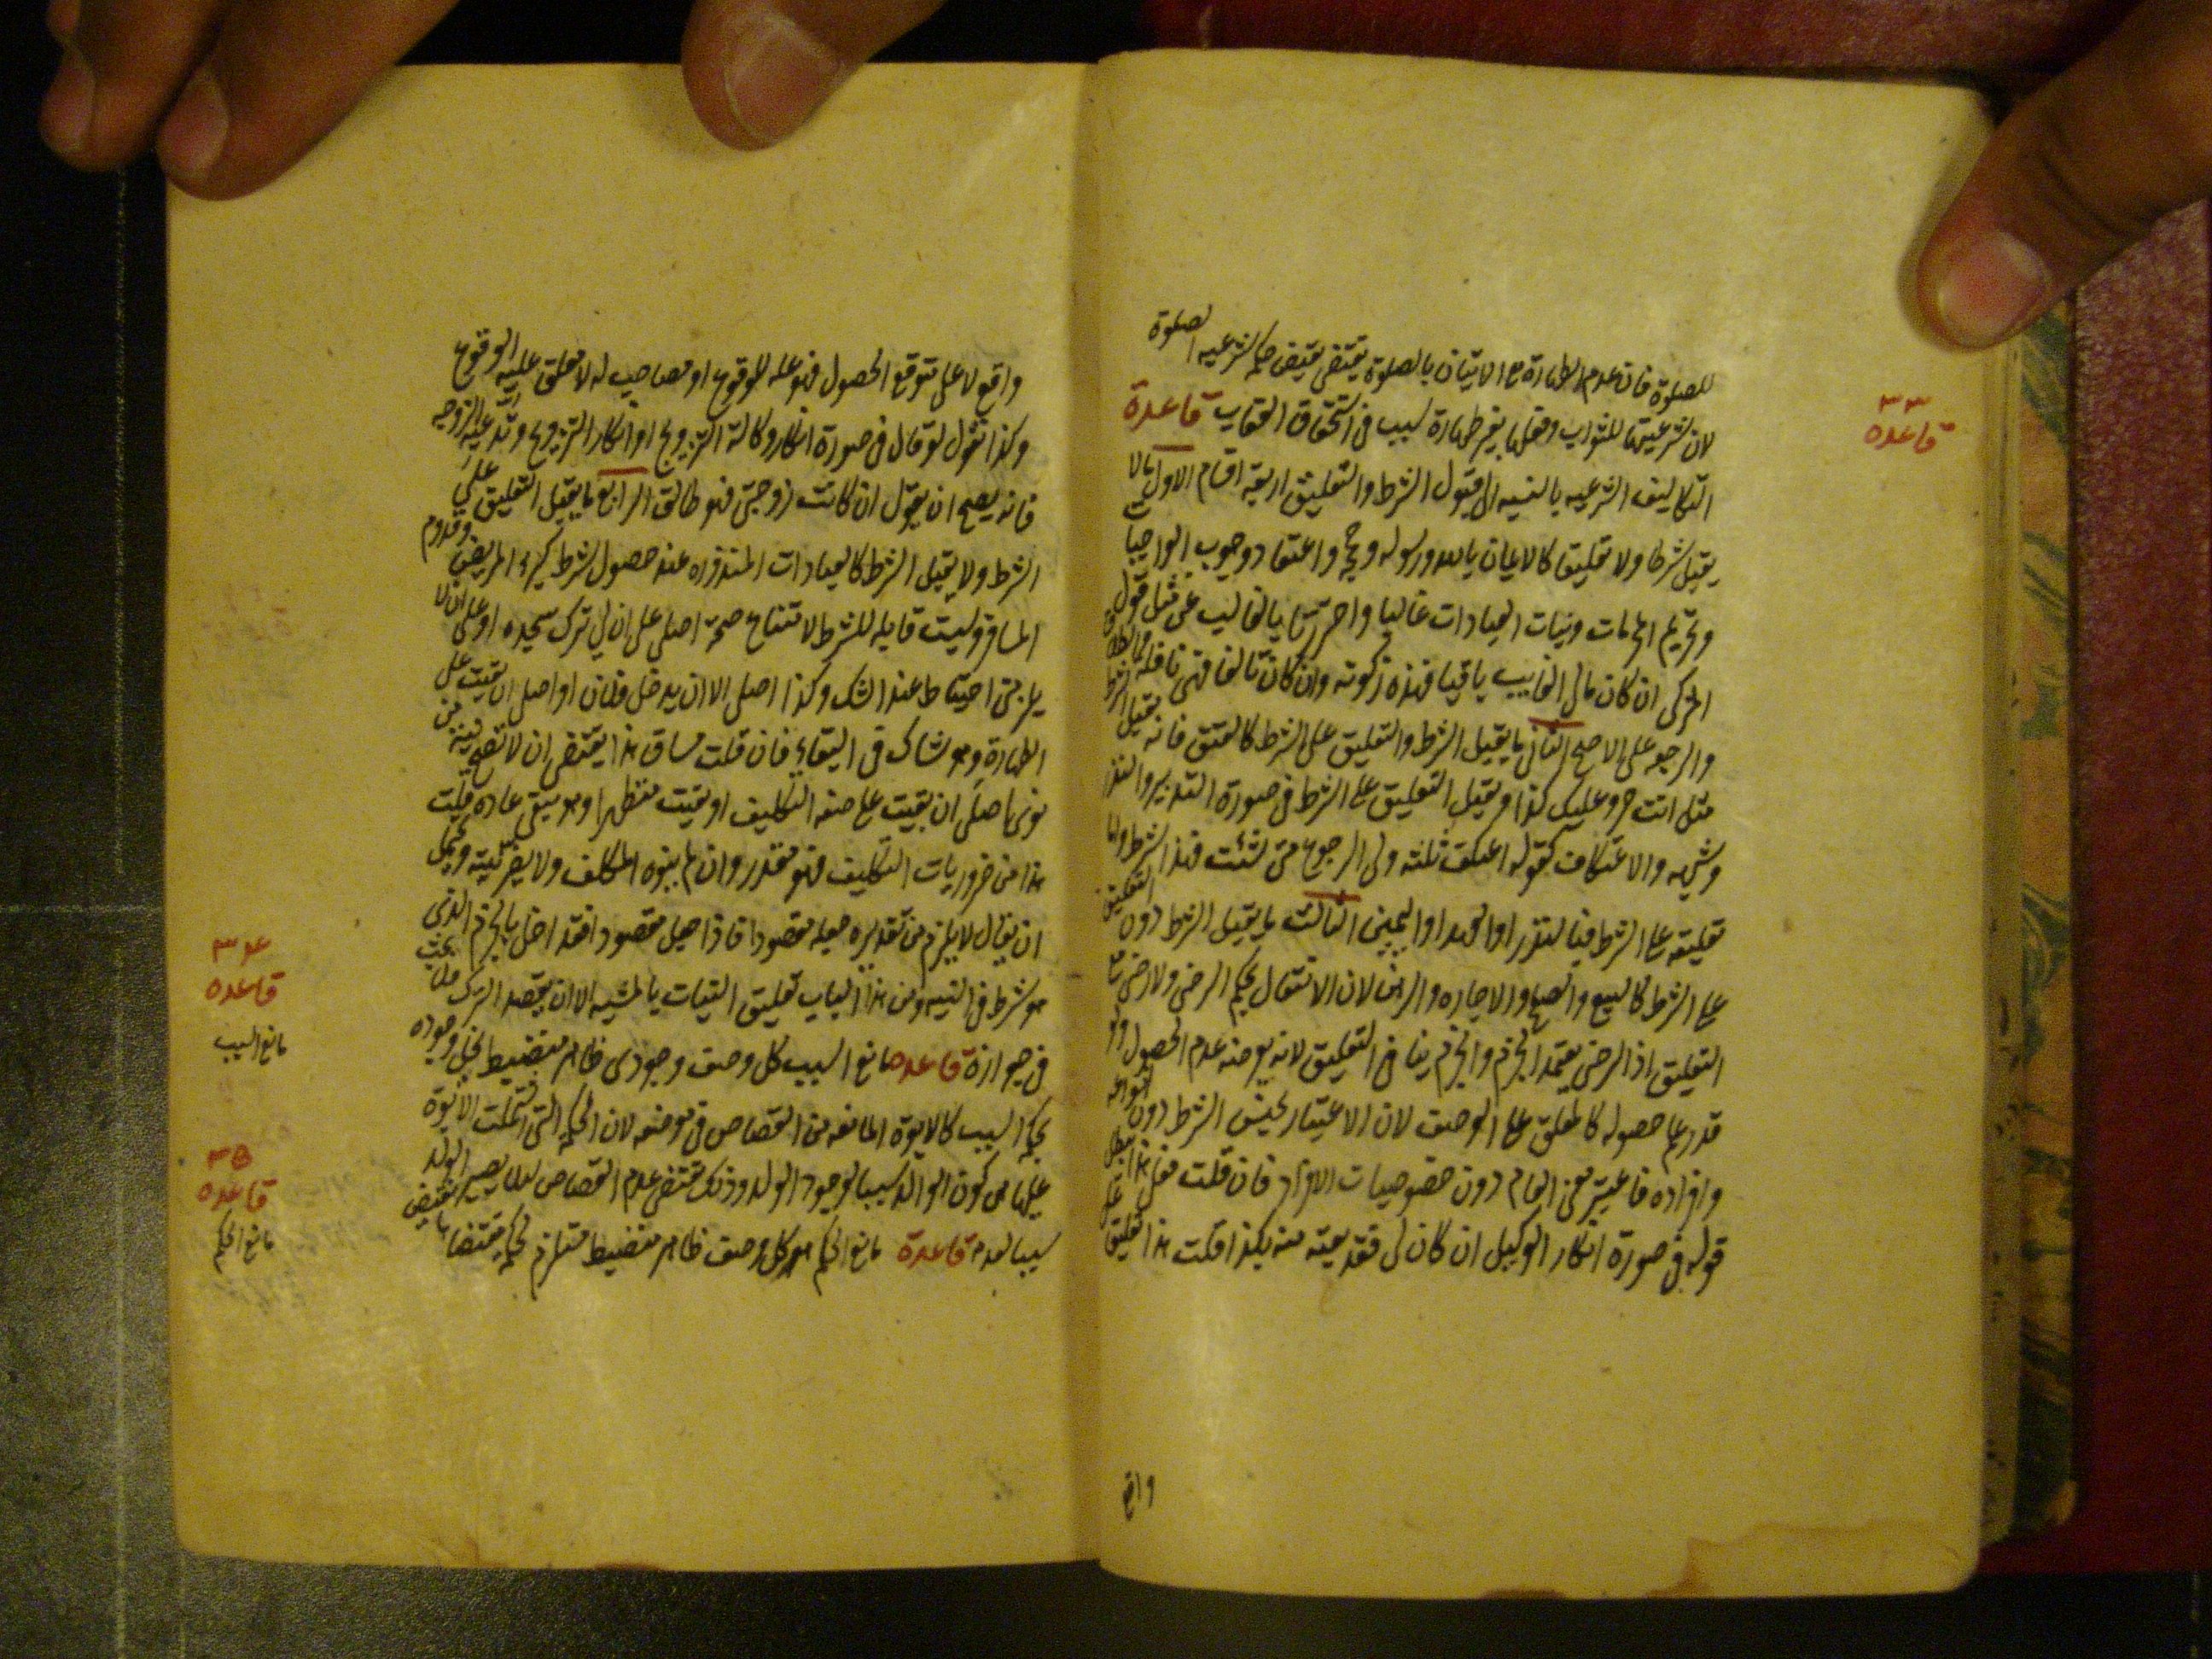 للصلوة فان عدم الطهارة مع الاتيان بالصلوة يقتضى نقيض حكم الشرعيه الصلوة
لان شرعيتها للثواب وفعلها بغير طهارة سبب فى استحقاق العقاب قاعدة
التكاليف الشرعيه بالنسبه الى قبول الشرط والتعليق اربعة اقسام الاول ما لا
يقبل شرطا ولا تعليقا كالايمان بالله ورسوله وحججه واعتقاد وجوب الواجبا
وتحريم المحرمات ونيات العبادات غالبا واحترزنا بالغالب عن مثل قول
المزكى ان كان مالى الغايب باقيا فهذه زكوته وان كان تالفا فهى نافله
والرجوع على الاصح الثانى ما يقبل الشرط والتعليق على الشرط كالعتق فانه يقبل الشرط
مثل انت حر وعليك كذا ويقبل التعليق على الشرط فى صورة التدبير والنذر
وشبهه والاعتكاف كقوله اعتكف ثلثه ولى الرجوع متى شئت فهذا الشرط واما
تعليقه على الشرط فبالنذر او العهد او اليمين الثالث ما يقبل الشرط دون التعليق
على الشرط كالبيع والصلح والاجاره والرهن لان الانتقال بحكم الرضى ولا رضى مع
التعليق اذ الرضى يعتمد الجزم والجزم ينافى التعليق لانه بعرضة عدم الحصول ولو
قدر علم حصوله كالمعلق على الوصف لان الاعتبار بجنس الشرط دون انواعه
وافراده فاعتبر معنى العام دون خصوصيات الافراد فان قلت فعلى هذا يبطل
قوله فى صورة انكار الوكيل ان كان لى فقد بعته منه بكذا قلت هذا تعليق على
واقع
٣٣
قاعده
واقع لا على متوقع الحصول فهو علة للوقوع او مصاحب له لا معلق عليه الوقوع
وكذا نقول لو قال فى صورة انكار وكالة التزويج او انكار التزويج وتدعيه الزوجه
فانه يصح ان يقول ان كانت زوجتى فهو طالق الرابع ما يقبل التعليق على
الشرط ولا يقبل الشرط كالعبادات المنذوره عند حصول شرط كبرء المريض وقدوم
المسافر وليست قابله للشرط لامتناع صحة اصلى على ان لى ترك سجده او على ان لا
يلزمنى احتياط عند الشك وكذا اصلى الا ان يدخل فلان او اصلى ان بقيت على
الطهارة وهو شاك فى البقاء فان قلت مساق هذا يقتضى ان لا تصح نية من
نوى اصلى ان بقيت على صفه التكليف او بقيت متطهرا وهو سيبقى عاده قلت
هذا من ضروريات التكليف فهو مقدر وان لم ينوه المكلف ولا يضر نيته ويحتمل
ان يقال لا يلزم من تقديره جعله مقصودا فاذا جعل مقصودا فقد اخل بالجزم الذى
هو شرط فى النيه ومن هذا الباب تعليق النيات بالمشيه الا ان يقصد التبرك محل بحث
فى جوازه قاعده مانع السبب كل وصف وجودى ظاهر منضبط يخل وجوده
بحكمة السبب كالابوة المانعه من القصاص فى موضعه لان الحكمه التى اشتملت الابوة
عليها هى كون الوالد سببا لوجود الولد وذلك يقتضى عدم القصاص لئلا يصير الولد
سببا لعدمه قاعدة مانع الحكم هو كل وصف ظاهر منضبط مستلزم لحكمة مقتضاها نقيض
٣٤
قاعده
مانع السبب
٣٥
قاعده
مانع الحكم